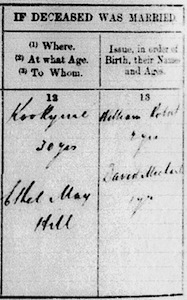 IF DECEASED WAS MARRIED.
(1) Where.
(2) At what Age.
(3) To Whom.
Issue, in order of
Birth, their Names
and Ages.
12
13
Kookynie
30 yrs
Ethel May
Hill
William Robert
yrs
David Michael
1 yr